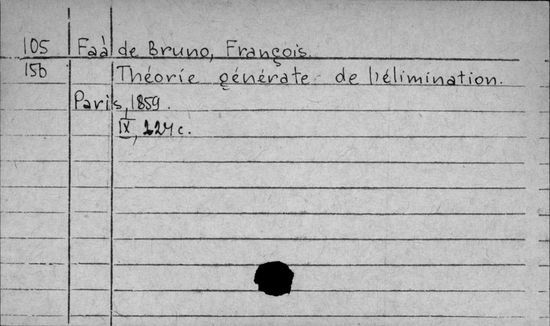 105 Faà de Bruno, François.
15b Théorie générate de l'élimination.
Paris, 1859.
IX, 224 c.